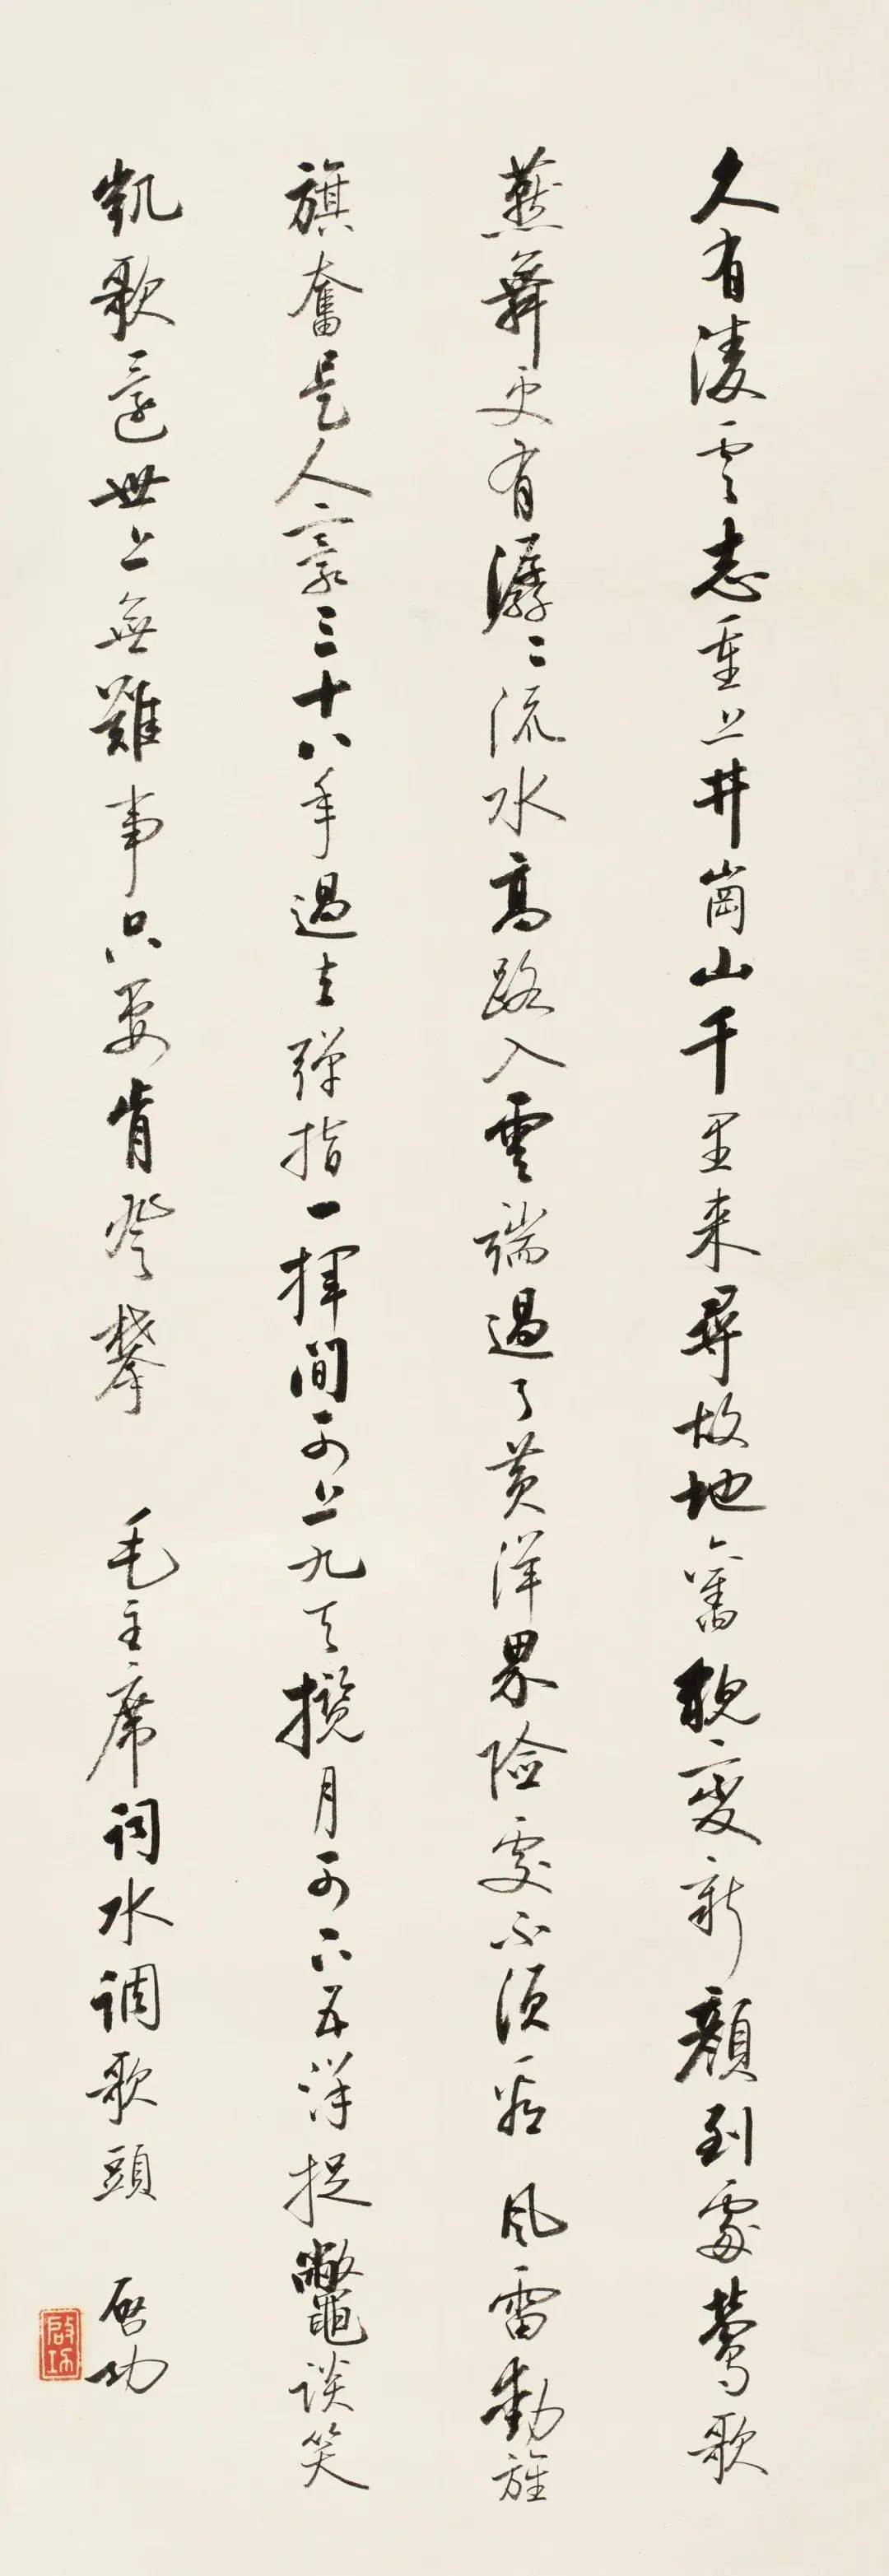 久有凌雲志重上井岡山千里来尋故地舊貌變新顔到處鶯歌
燕舞更有潺〻流水高路入雲端過了黄洋界險處不須看風雷動旌
旗奮是人寰三十八年過去彈指一揮間可上九天攬月可下五洋捉鼈談笑
凱歌還世上無難事只要肯登攀 毛主席詞水調歌頭 啓功
啟功